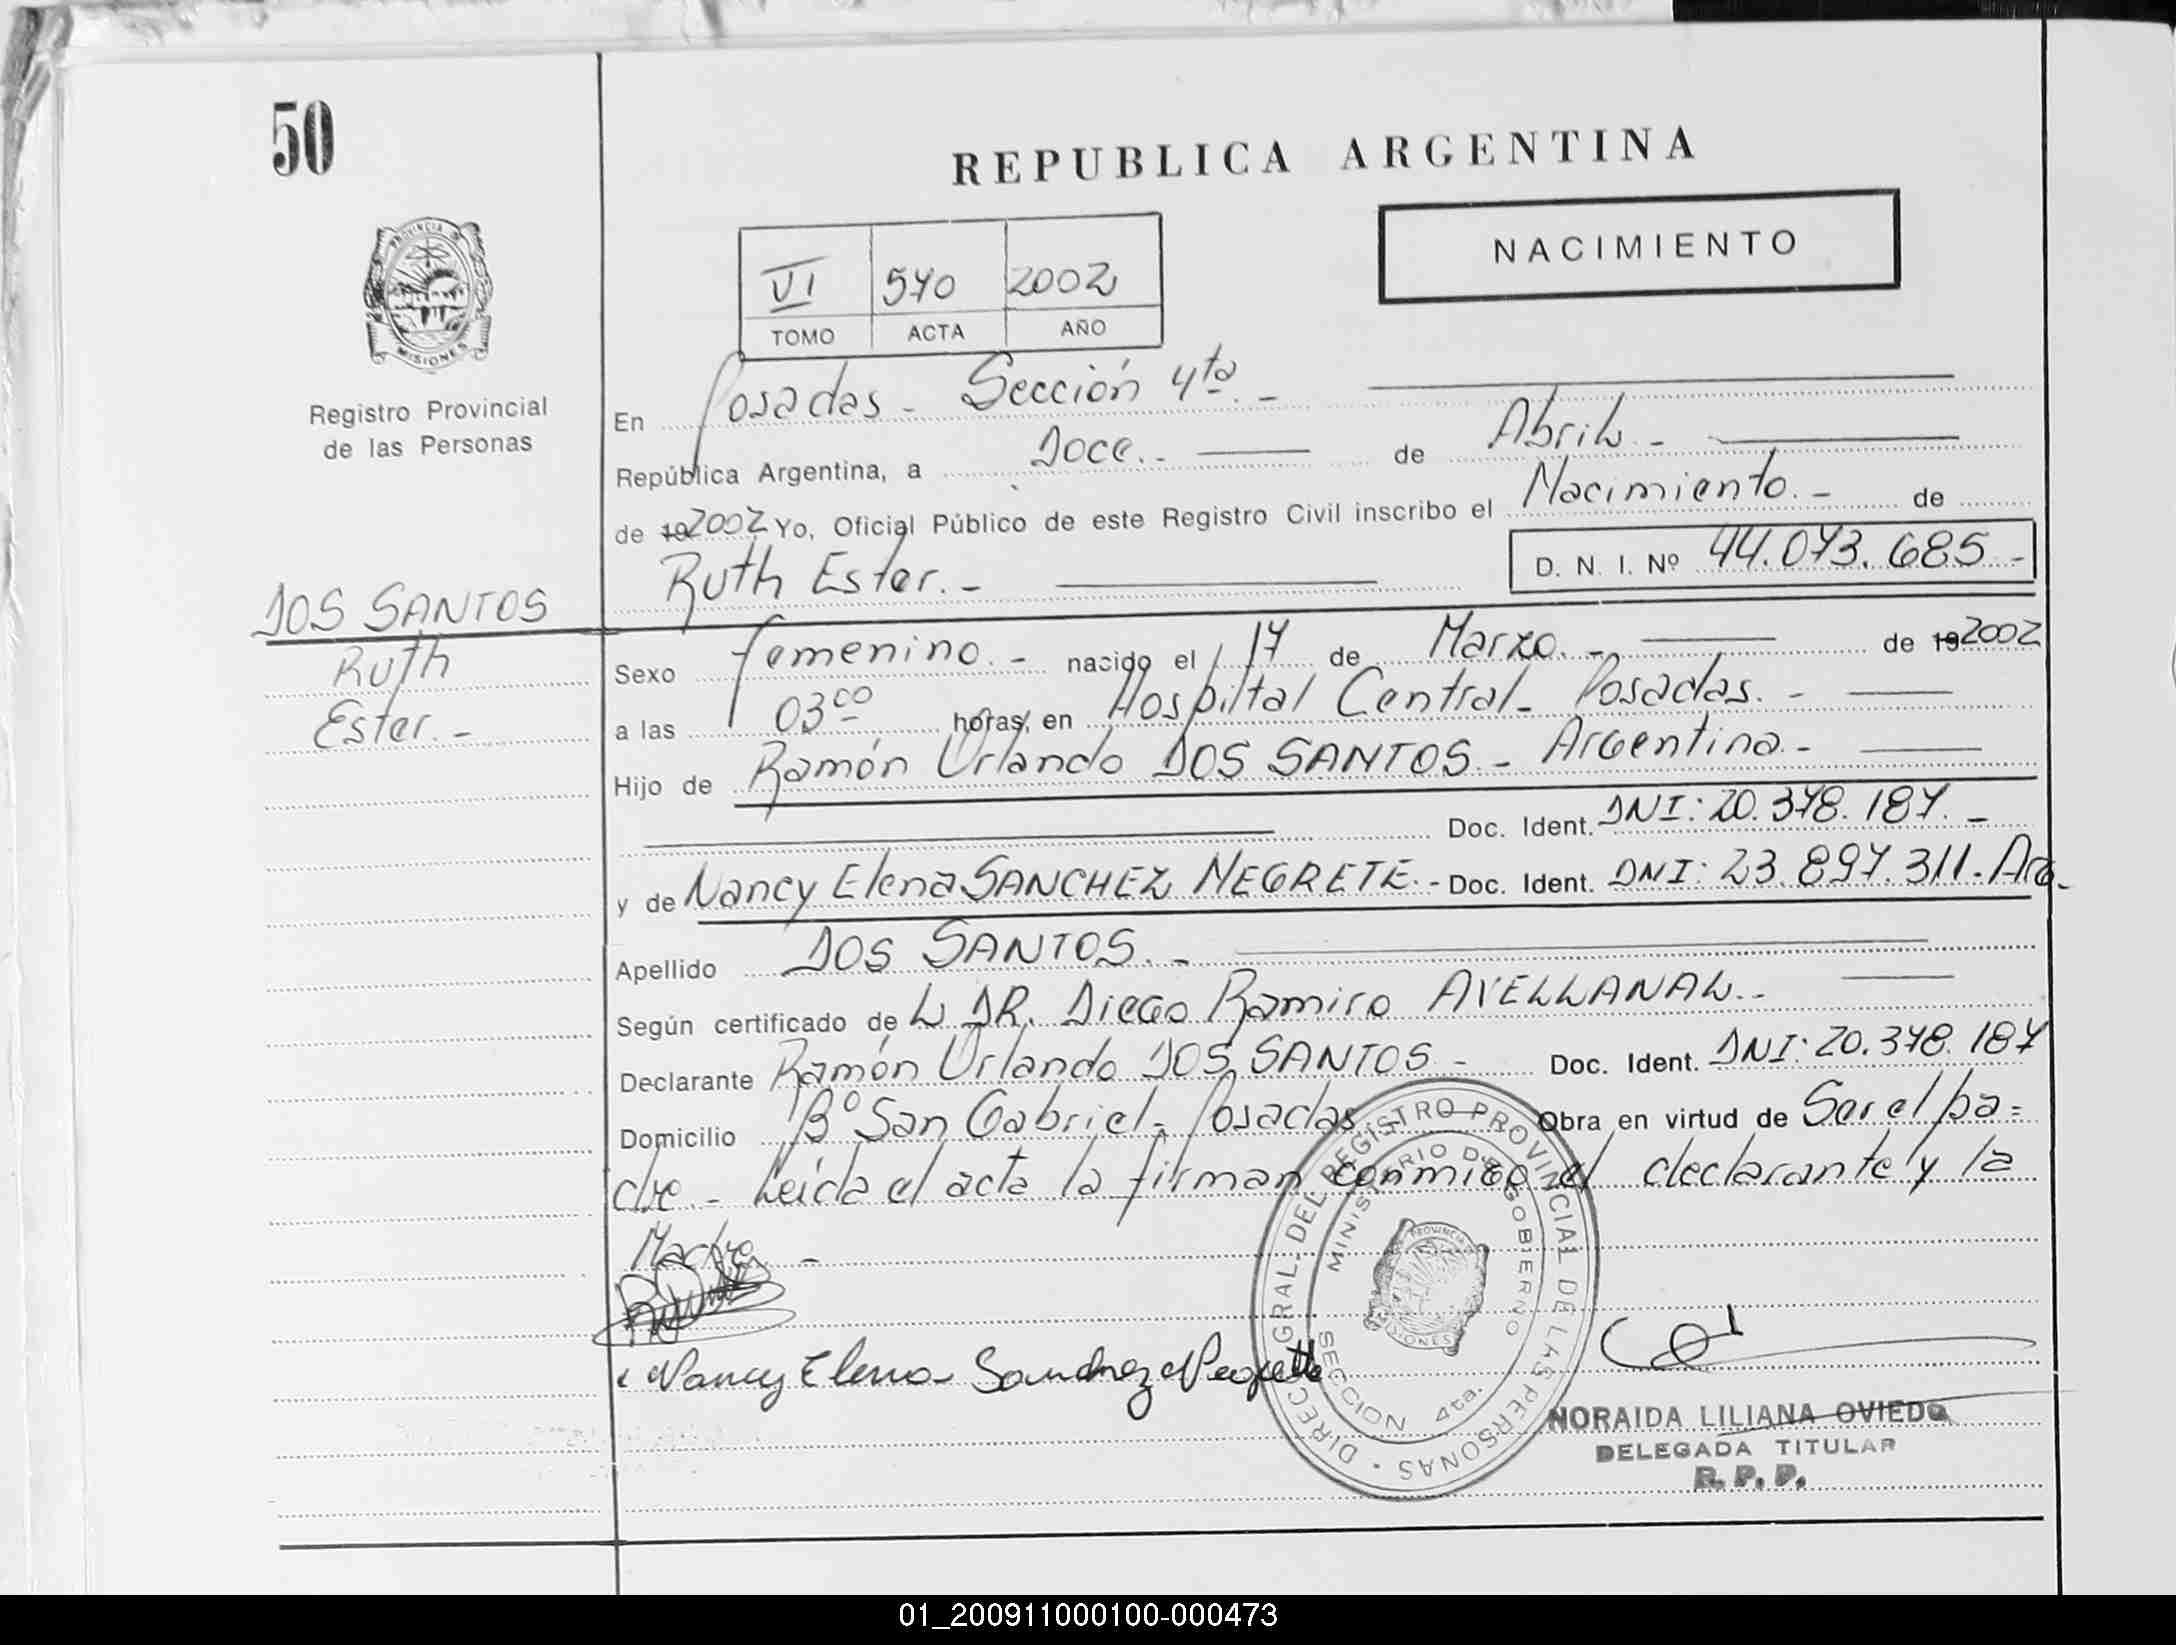 50
REPUBLICA ARGENTINA
NACIMIENTO
VI 570 2002
TOMO ACTA AÑO
PROVINCIA DE
MISIONES
Registro Provincial
de las Personas
En Posadas - Sección 4ta. -
República Argentina, a Doce. - de Abril. -
de 19 2002 Yo, Oficial Público de este Registro Civil inscribo el Nacimiento. - de
Ruth Ester. - D. N. I. Nº 44.073.685 -
DOS SANTOS
Ruth
Ester. -
Sexo femenino. - nacido el 17 de Marzo. - de 19 2002
a las 03 00 horas, en Hospiltal Central - Posadas. -
Hijo de Ramón Orlando DOS SANTOS - Argentina. -
Doc. Ident. DNI: 20.378.187. -
y de Nancy Elena SANCHEZ NEGRETE. - Doc. Ident. DNI: 23.897.311. Arg.
Apellido DOS SANTOS. -
Según certificado de L DR. Diego Ramiro AVELLANAL. -
Declarante Ramón Orlando DOS SANTOS - Doc. Ident. DNI: 20.378.187
Domicilio Bº San Gabriel - Posadas Obra en virtud de Ser el pa=
dre. - Leída el acta la firman conmigo el declarante y la
Madre -
Nancy Elena Sanchez Negrette
DIRECC. GRAL. DEL REGISTRO PROVINCIAL DE LAS PERSONAS
MINISTERIO DE GOBIERNO
SECCION 4ta.
NORAIDA LILIANA OVIEDO
DELEGADA TITULAR
R. P. P.
01_200911000100-000473